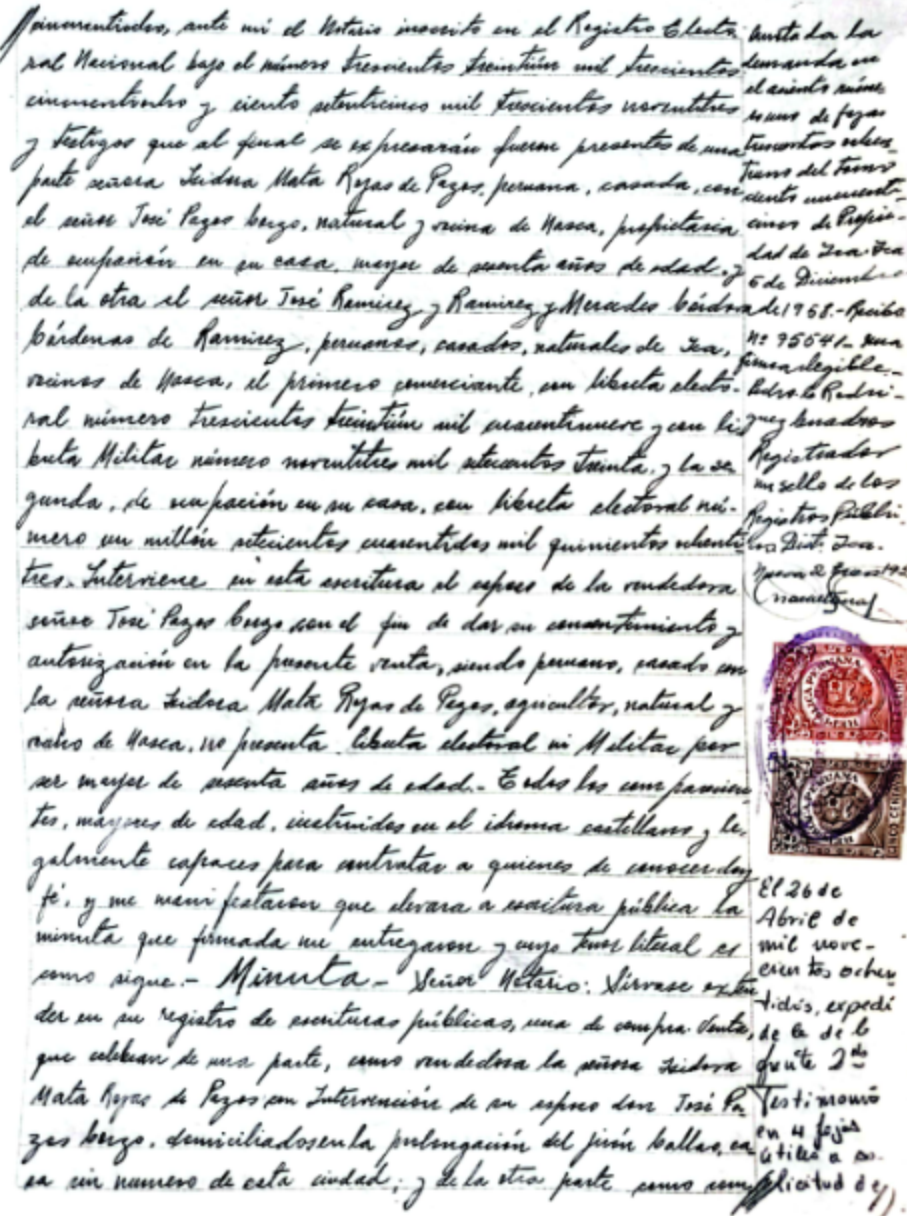 cincuentiocho, ante mí el Notario inscrito en el Registro Electo
ral Nacional bajo el número trescientos treintiún mil trescientos
cincuentiocho y ciento setenticinco mil trescientos noventitres
y testigos que al final se expresarán fueron presentes de una
parte señora Isidora Mata Rojas de Pazos, peruana, casada, con
el señor José Pazos, natural y vecina de Nasca, propietaria
de ocupación en su casa, mayor de sesenta años de edad, y
de la otra el señor José Ramirez y Ramirez y Mercedes Córdova
Cárdenas de Ramirez, peruanos, casados, naturales de Ica,
vecinos de Nasca, el primero comerciante, con libreta electo-
ral número trescientos treintiún mil cuarentinueve y con li
breta Militar número noventitres mil setecientos treinta, y la se
gunda, de ocupación en su casa, con libreta electoral nú-
mero un millón setecientos cuarentidos mil quinientos ochenti
tres. Interviene en esta escritura el esposo de la vendedora
señor José Pazos con el fin de dar su consentimiento y
autorización en la presente venta, siendo peruano, casado con
la señora Isidora Mata Rojas de Pazos, agricultor, natural y
vecino de Nasca, no presenta libreta electoral ni Militar por
ser mayor de sesenta años de edad.- Todos los comparecien
tes, mayores de edad, instruidos en el idioma castellano y le-
galmente capaces para contratar a quienes de conocer doy
fé, y me manifestaron que elevara a escritura pública la
minuta que firmada me entregaron y cuyo tenor literal es
como sigue.- Minuta - Señor Notario: Sírvase exten
der en su registro de escrituras públicas, una de compra-venta,
que celebran de una parte, como vendedora la señora Isidora
Mata Rojas de Pazos con Intervención de su esposo don José Pa
zos, domiciliados en la prolongación del jirón Callao, ca
sa sin numero de esta ciudad; y de la otra parte como com
Anotada la
demanda en
el asiento núme
ro uno de fojas
trescientos
del Tomo
ciento
cinco de Propie-
dad de Ica. Ica
6 de Diciembre
de 1968.- Recibo
Nº 95541.- una
firma ilegible.-
Pedro C. Rodri-
guez
Registrador
un sello de los
Registros Públi-
cos Dist. Ica.
Nasca 2
El 26 de
Abril de
mil nove-
cientos ochen
tidós, expedí
2do
Testimonio
en 4 fojas
útiles a so-
licitud de